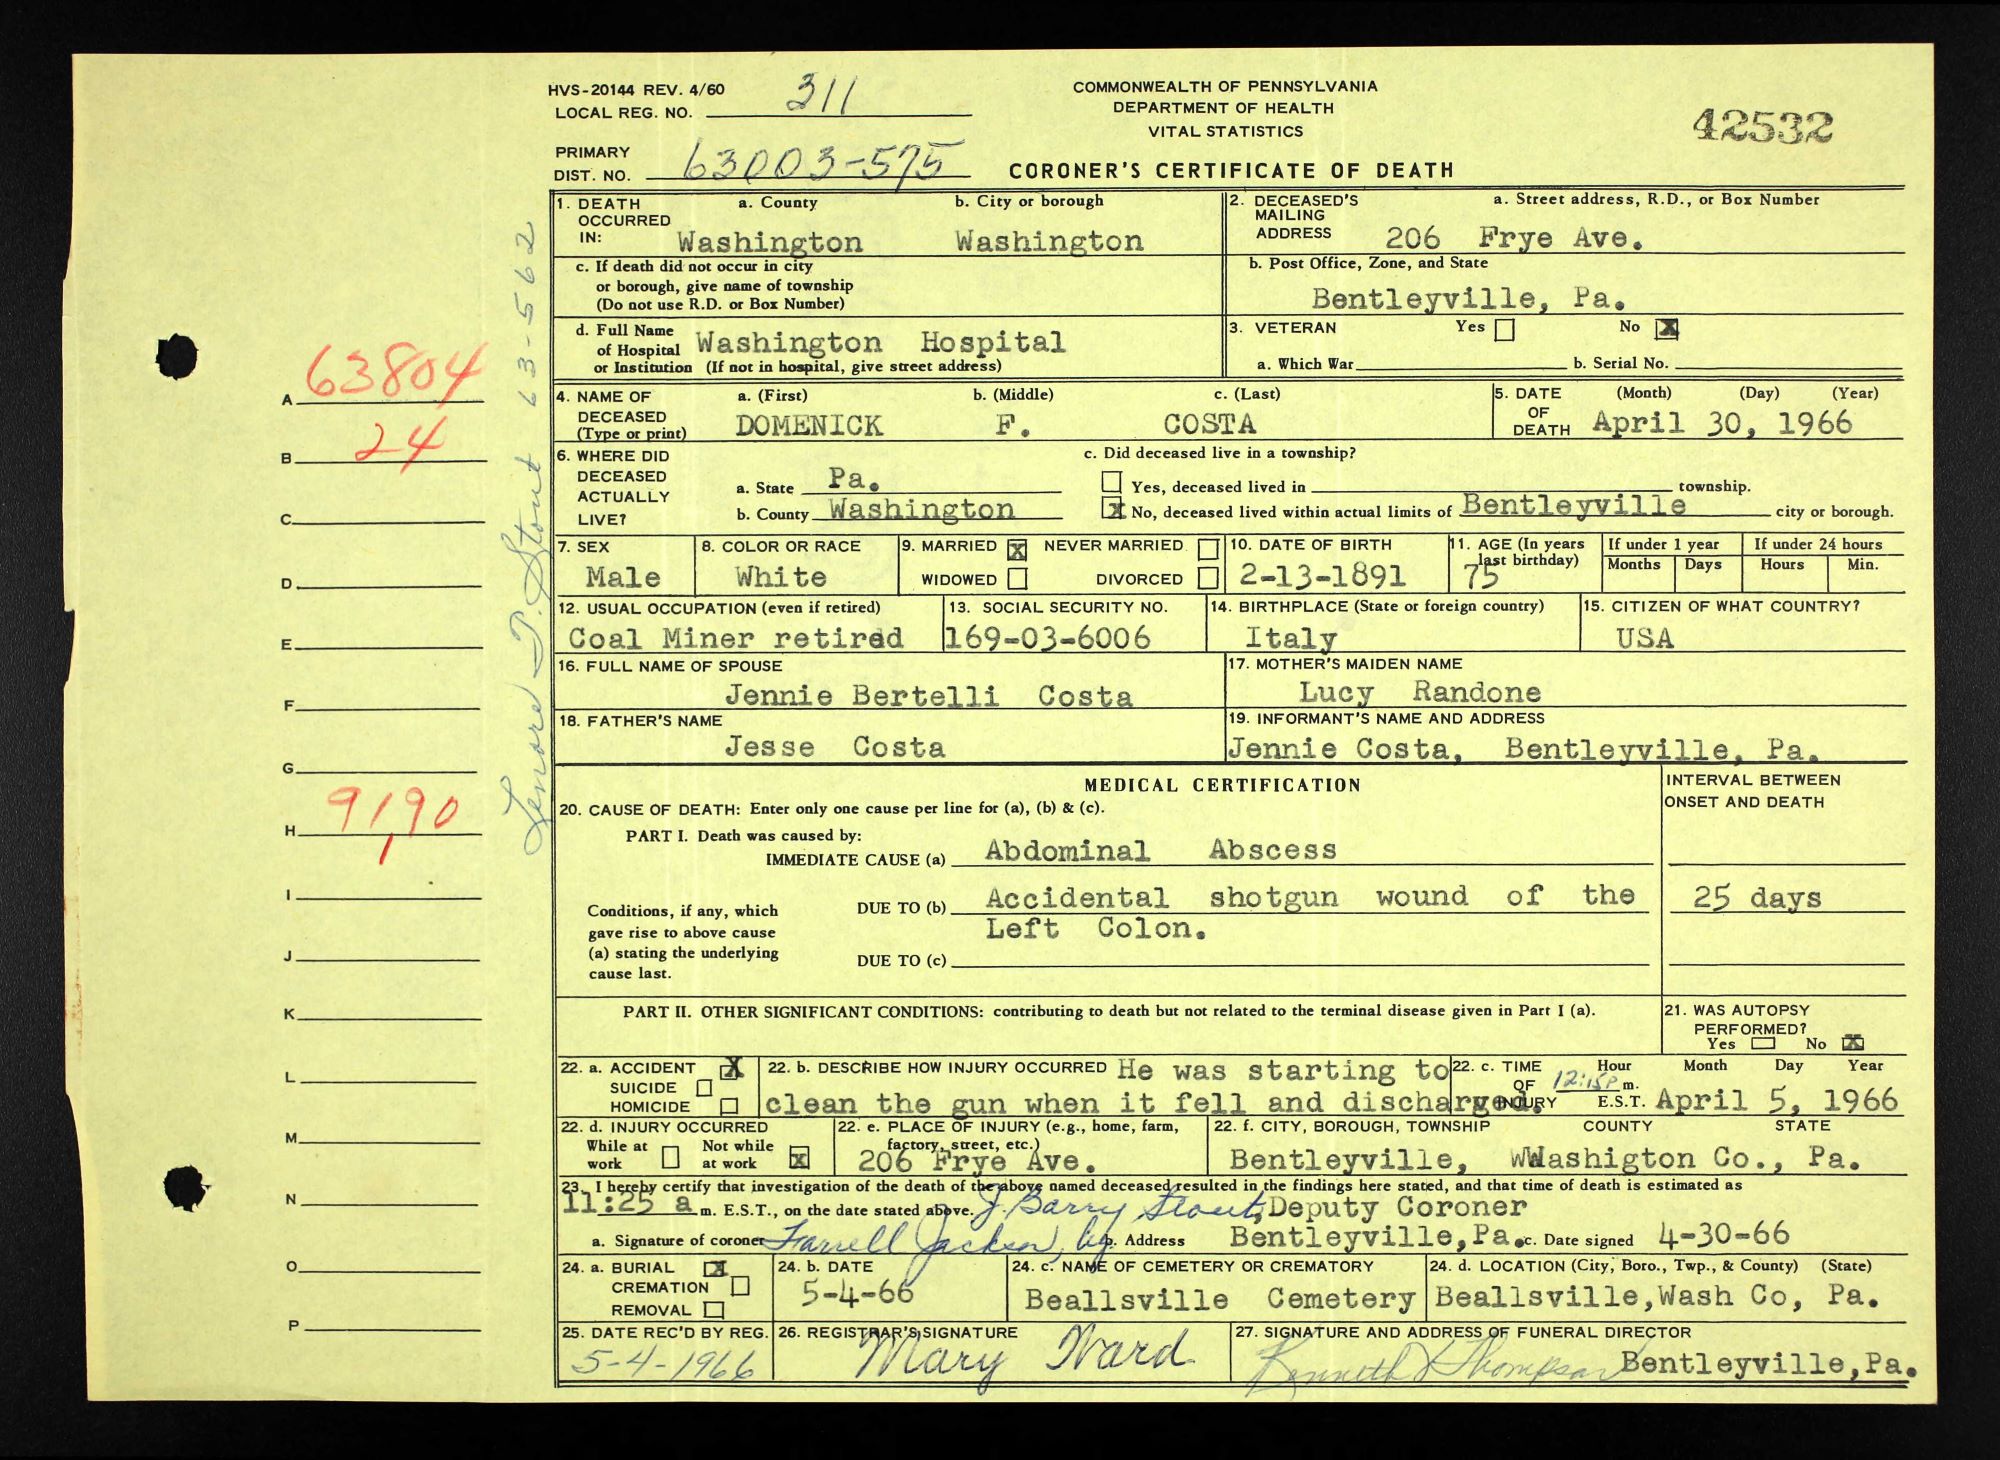 HVS-20144 REV. 4/60
LOCAL REG. NO. 311
PRIMARY
DIST. NO. 63003-575
COMMONWEALTH OF PENNSYLVANIA
DEPARTMENT OF HEALTH
VITAL STATISTICS
CORONER'S CERTIFICATE OF DEATH
42532
1. DEATH OCCURRED IN: a. County b. City or borough
Washington Washington
c. If death did not occur in city
or borough, give name of township
(Do not use R.D. or Box Number)
d. Full Name
of Hospital Washington Hospital
or Institution (If not in hospital, give street address)
2. DECEASED'S MAILING ADDRESS a. Street address, R.D., or Box Number
206 Frye Ave.
b. Post Office, Zone, and State
Bentleyville, Pa.
3. VETERAN Yes No X
a. Which War b. Serial No.
4. NAME OF DECEASED (Type or print) a. (First) b. (Middle) c. (Last)
DOMENICK F. COSTA
5. DATE OF DEATH (Month) (Day) (Year)
April 30, 1966
6. WHERE DID DECEASED ACTUALLY LIVE?
a. State Pa.
b. County Washington
c. Did deceased live in a township?
Yes, deceased lived in township.
X No, deceased lived within actual limits of Bentleyville city or borough.
7. SEX
Male
8. COLOR OR RACE
White
9. MARRIED X NEVER MARRIED
WIDOWED DIVORCED
10. DATE OF BIRTH
2-13-1891
11. AGE (In years last birthday)
75
If under 1 year
Months Days
If under 24 hours
Hours Min.
12. USUAL OCCUPATION (even if retired)
Coal Miner retired
13. SOCIAL SECURITY NO.
169-03-6006
14. BIRTHPLACE (State or foreign country)
Italy
15. CITIZEN OF WHAT COUNTRY?
USA
16. FULL NAME OF SPOUSE
Jennie Bertelli Costa
17. MOTHER'S MAIDEN NAME
Lucy Randone
18. FATHER'S NAME
Jesse Costa
19. INFORMANT'S NAME AND ADDRESS
Jennie Costa, Bentleyville, Pa.
MEDICAL CERTIFICATION
INTERVAL BETWEEN
ONSET AND DEATH
20. CAUSE OF DEATH: Enter only one cause per line for (a), (b) & (c).
PART I. Death was caused by:
IMMEDIATE CAUSE (a) Abdominal Abscess
Conditions, if any, which
gave rise to above cause
(a) stating the underlying
cause last.
DUE TO (b) Accidental shotgun wound of the 25 days
Left Colon.
DUE TO (c)
PART II. OTHER SIGNIFICANT CONDITIONS: contributing to death but not related to the terminal disease given in Part I (a).
21. WAS AUTOPSY
PERFORMED?
Yes No X
22. a. ACCIDENT X
SUICIDE
HOMICIDE
22. b. DESCRIBE HOW INJURY OCCURRED He was starting to
clean the gun when it fell and discharged.
22. c. TIME OF INJURY Hour Month Day Year
12:15P m.
E.S.T. April 5, 1966
22. d. INJURY OCCURRED
While at work Not while at work X
22. e. PLACE OF INJURY (e.g., home, farm,
factory, street, etc.)
206 Frye Ave.
22. f. CITY, BOROUGH, TOWNSHIP COUNTY STATE
Bentleyville, WWashigton Co., Pa.
23. I hereby certify that investigation of the death of the above named deceased resulted in the findings here stated, and that time of death is estimated as
11:25 a m. E.S.T., on the date stated above. J. Barry Stout, Deputy Coroner
a. Signature of coroner Farrell Jackson, by b. Address Bentleyville, Pa. c. Date signed 4-30-66
24. a. BURIAL X
CREMATION
REMOVAL
24. b. DATE
5-4-66
24. c. NAME OF CEMETERY OR CREMATORY
Beallsville Cemetery
24. d. LOCATION (City, Boro., Twp., & County) (State)
Beallsville, Wash Co, Pa.
25. DATE REC'D BY REG.
5-4-1966
26. REGISTRAR'S SIGNATURE
Mary Ward
27. SIGNATURE AND ADDRESS OF FUNERAL DIRECTOR
Kenneth Thompson Bentleyville, Pa.
A 63804
B 24
C
D
E
F
G
H 91,90
I
J
K
L
M
N
O
P
Lenore P. Stout 63-562